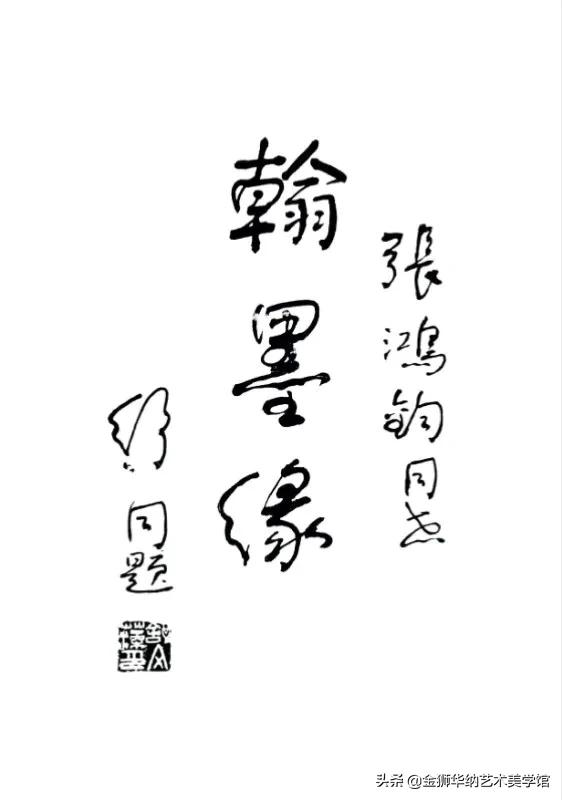 張鴻鈞同志
翰墨緣
舒同題
头条 @金狮华纳艺术美学馆